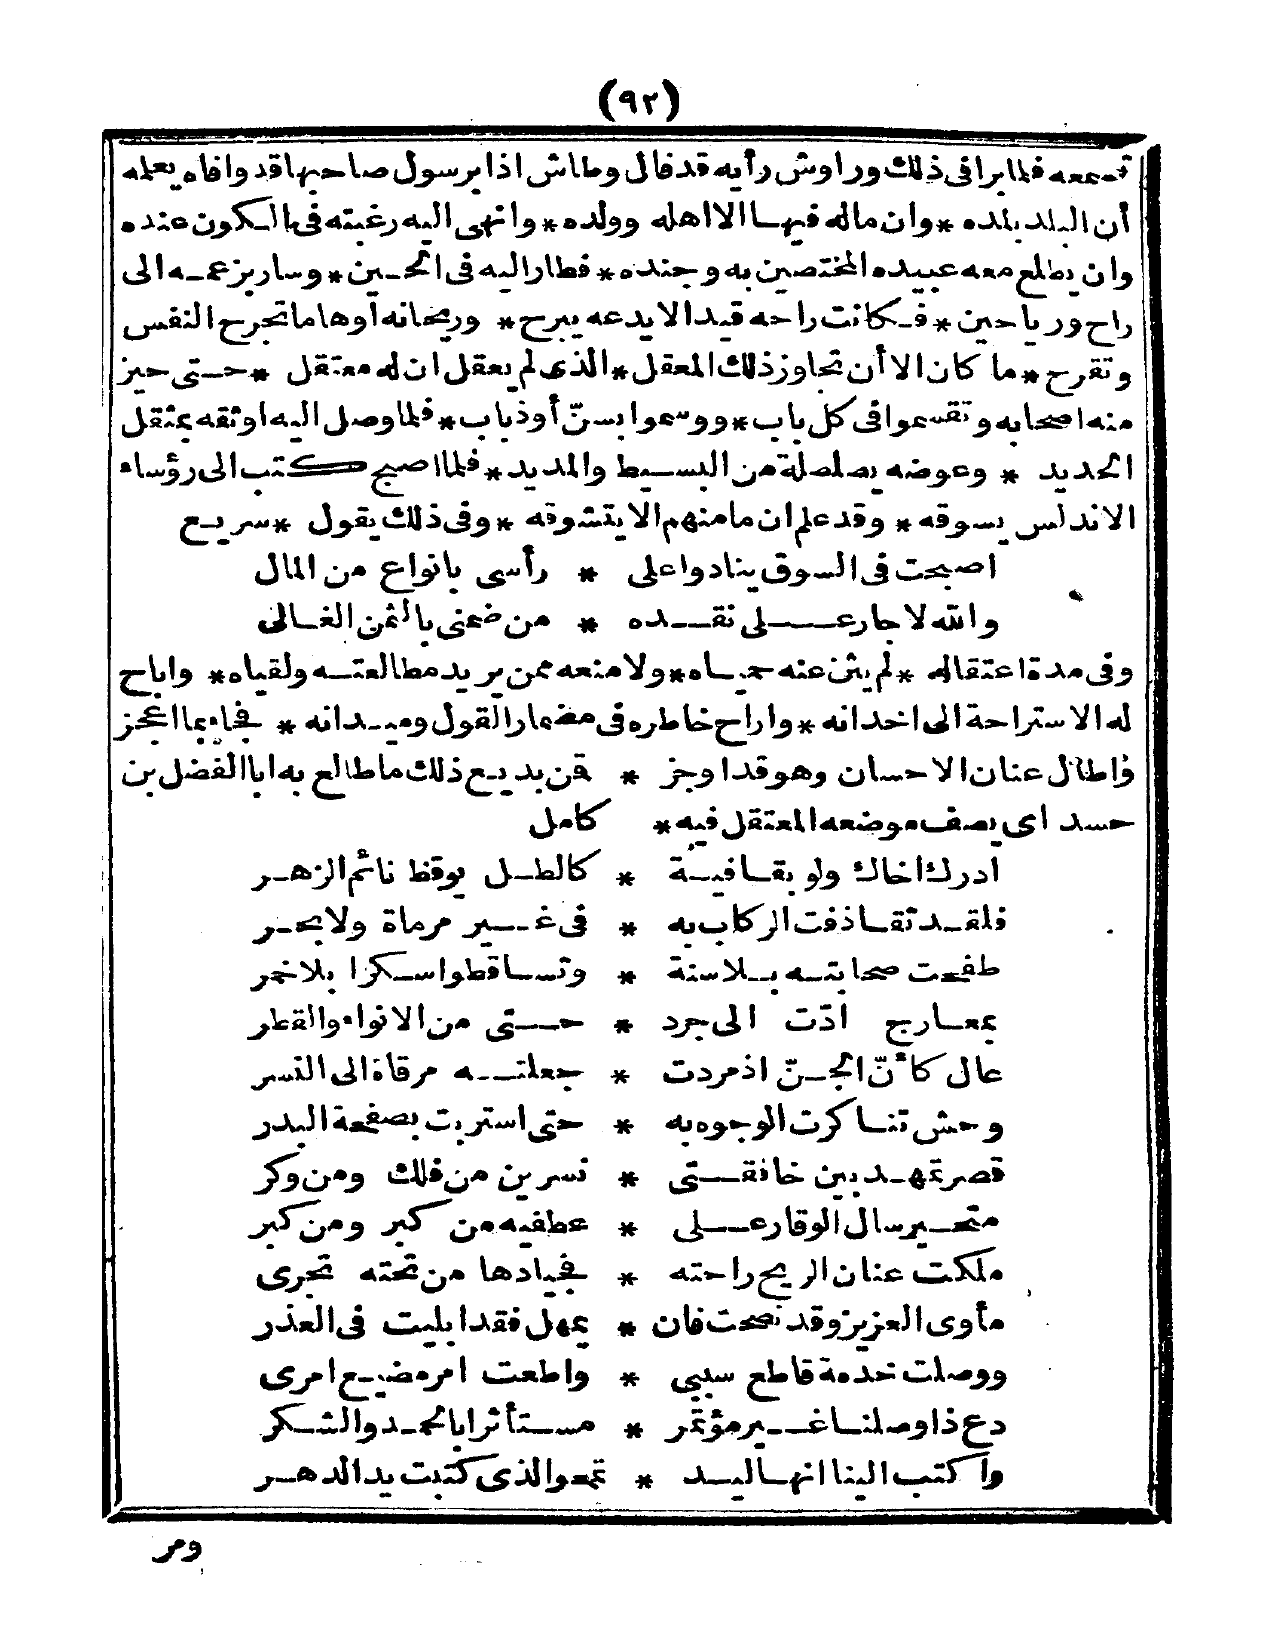 (٩٢)
تمنعه فلما يرا فى ذلك وراوش رأيه قد فال وطاش اذا برسول صاحبها قد وافاه يعلمه
أن البلد بلده * وان ماله فيها الا اهله وولده * وانهى اليه رغبته فى الكون عنده
وان يطلع معه عبيده المختصين به وجنده * فطار اليه فى الحين * وسار بزعمه الى
راح ورياحين * فكانت راحه قيد الا يدعه يبرح * وريحانه أوهاما تجرح النفس
وتقرح * ما كان الا أن تجاوز ذلك المعقل * الذى لم يعقل ان له معتقل * حتى حيز
منه اصحابه وتقسموا فى كل باب * ووسموا بسنّ أوذباب * فلما وصل اليه اوثقه بمثقل
الحديد * وعوضه بصلصلة من البسيط والمديد * فلما اصبح كتب الى رؤساء
الاندلس يسوقه * وقد علم ان ما منهم الا يتشوقه * وفى ذلك يقول * سريع
اصبحت فى السوق ينادوا على * رأسى بانواع من المال
والله لا جار على نقده * من ضمنى بالثمن الغالى
وفى مدة اعتقاله * لم يثن عنه حياه * ولا منعه ممن يريد مطالعته ولقياه * واباح
له الاستراحة الى اخدانه * واراح خاطره فى مضمار القول وميدانه * فجاء بما اعجز
واطال عنان الاحسان وهو قد اوجز * فمن بديع ذلك ما طالع به ابا الفضل بن
حسداى يصف موضعه المعتقل فيه * كامل
ادرك اخاك ولو بقافية * كالطل يوقظ نائم الزهر
فلقد تقاذفت الركاب به * فى غير مرماة ولا بحر
طفحت صحابته بلا سنة * وتساقطوا سكرا بلا خمر
بمعارج ادّت الى جرد * حتى من الانواء والقطر
عال كأنّ الجنّ اذ مردت * جعلته مرقاة الى النسر
وحش تناكرت الوجوه به * حتى استربت بصفحة البدر
قصر تمهد بين خافقتى * نسرين من فلك ومن وكر
متحير سال الوقار على * عطفيه من كبر ومن كبر
ملكت عنان الريح راحته * فجيادها من تحته تجرى
مأوى العزيز وقد نصحت فان * يمهل فقد ابليت فى العذر
ووصلت خدمة قاطع سببى * واطعت امر مضيع امرى
دع ذا وصلنا غير مؤتمر * مستأثرا بالحمد والشكر
واكتب الينا انها ليد * تمحو الذى كتبت يد الدهر
ومر